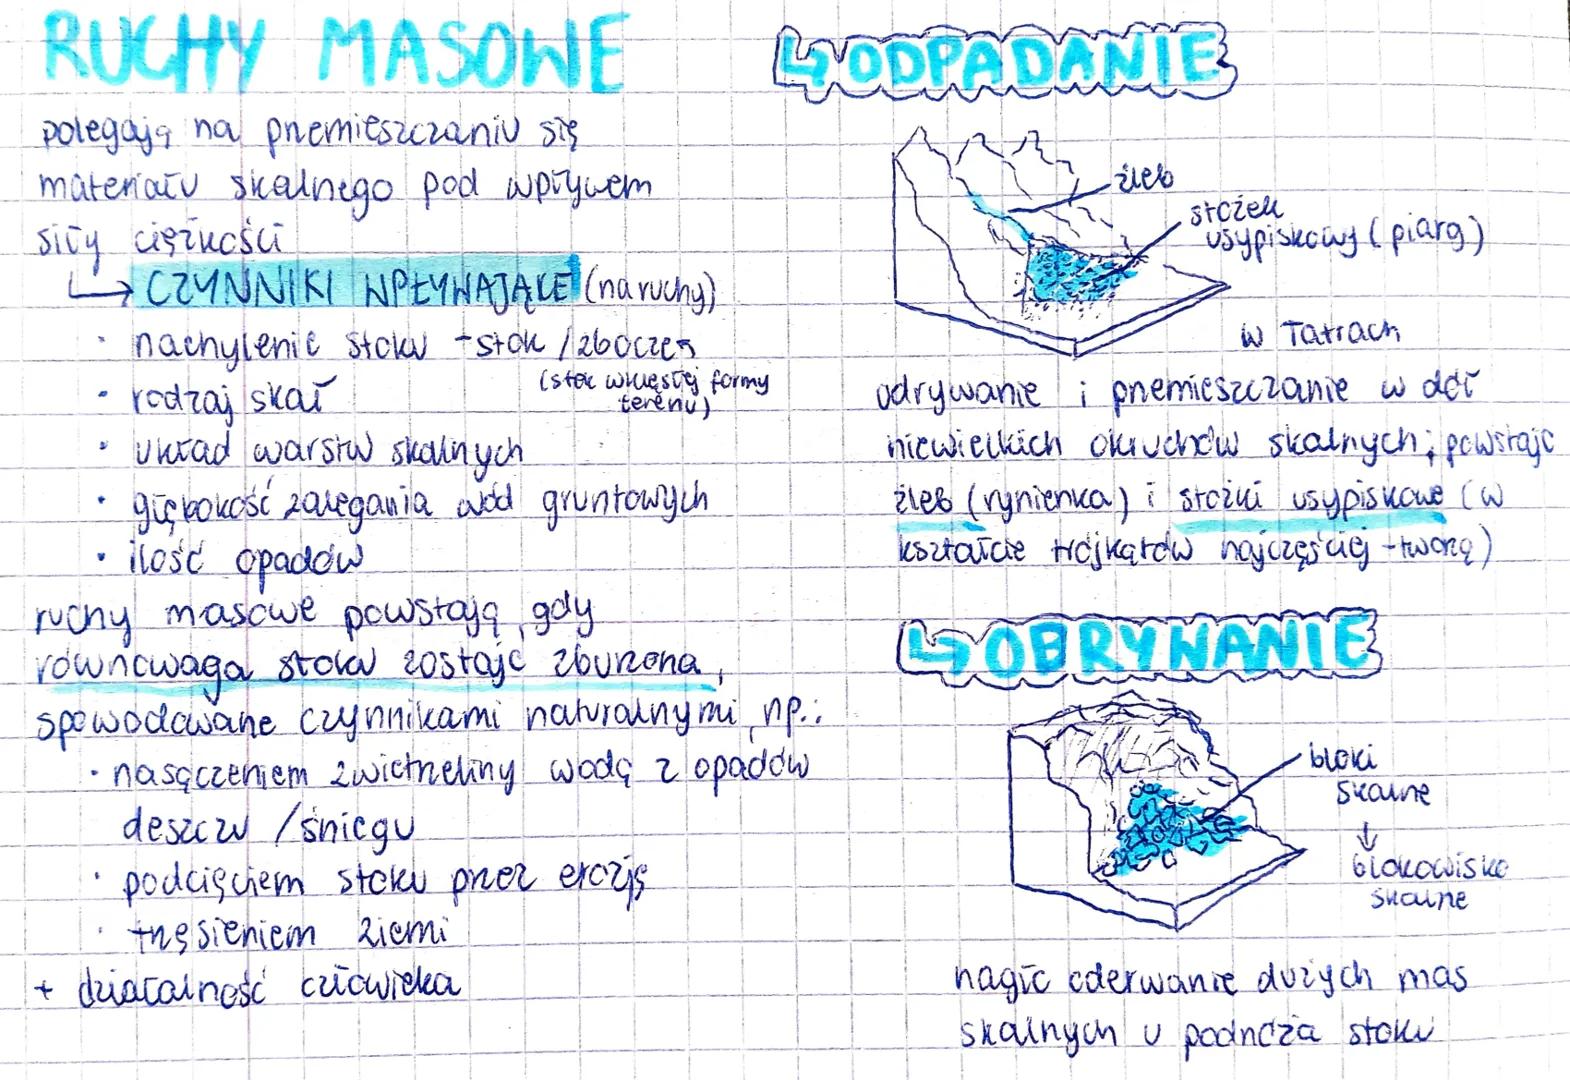 RUCHY MASOWE
polegają na przemieszczaniu się
materiału skalnego pod wpływem
siły ciężkości
↳ CZYNNIKI WPŁYWAJĄCE (na ruchy)
· nachylenie stoku - stok / zbocze
(stok wklęsłej formy
terenu)
· rodzaj skał
· układ warstw skalnych
· głębokość zalegania wód gruntowych
· ilość opadów
ruchy masowe powstają, gdy
równowaga stoku zostaje zburzona,
spowodowane czynnikami naturalnymi, np.:
· nasączeniem zwietrzeliny wodą z opadów
deszczu / śniegu
· podcięciem stoku przez erozję
· trzęsieniem ziemi
+ działalność człowieka
↳ ODPADANIE
żleb
stożek
usypiskowy (piarg)
w Tatrach
odrywanie i przemieszczanie w dół
niewielkich okruchów skalnych; powstaje
żleb (rynienka) i stożki usypiskowe (w
kształcie trójkątów najczęściej - tworzą)
↳ OBRYWANIE
bloki
skalne
↓
blokowisko
skalne
nagłe oderwanie dużych mas
skalnych u podnóża stoku